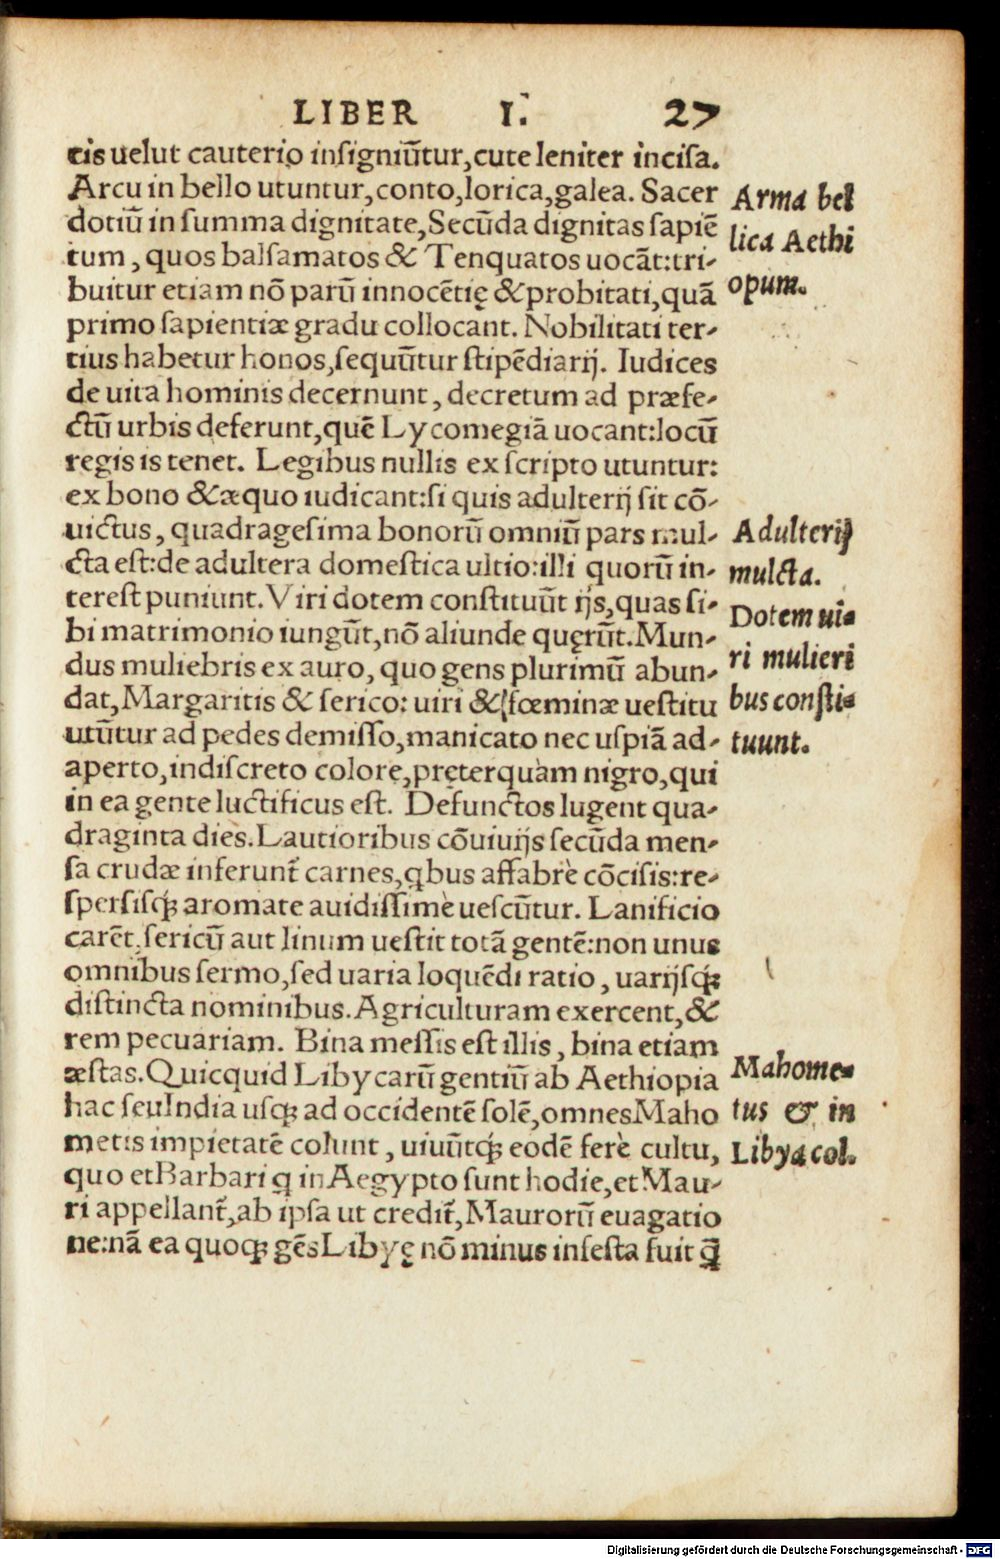 LIBER I. 27
tis uelut cauterio inſigniūtur, cute leniter inciſa.
Arcu in bello utuntur, conto, lorica, galea. Sacer
dotiū in ſumma dignitate, Secūda dignitas ſapiē
tum, quos balſamatos & Tenquatos uocāt: tri-
buitur etiam nō parū innocētię & probitati, quā
primo ſapientiæ gradu collocant. Nobilitati ter-
tius habetur honos, ſequūtur ſtipēdiarij. Iudices
de uita hominis decernunt, decretum ad præfe-
ctū urbis deferunt, quē Lycomegiā uocant: locū
regis is tenet. Legibus nullis ex ſcripto utuntur:
ex bono & æquo iudicant: ſi quis adulterij ſit cō-
uictus, quadrageſima bonorū omniū pars mul-
cta eſt: de adultera domeſtica ultio: illi quorū in-
tereſt puniunt. Viri dotem conſtituūt ijs, quas ſi-
bi matrimonio iungūt, nō aliunde quęrūt. Mun-
dus muliebris ex auro, quo gens plurimū abun-
dat, Margaritis & ſerico: uiri & fœminæ ueſtitu
utūtur ad pedes demiſſo, manicato nec uſpiā ad-
aperto, indiſcreto colore, pręterquàm nigro, qui
in ea gente luctificus eſt. Defunctos lugent qua-
draginta dies. Lautioribus cōuiuijs ſecūda men-
ſa crudæ inferunt̃ carnes, qbus affabrè cōciſis: re-
ſperſisq́ꝫ aromate auidiſſimè ueſcūtur. Lanificio
carēt, ſericū aut linum ueſtit totā gentē: non unus
omnibus ſermo, ſed uaria loquēdi ratio, uarijſq́ꝫ
diſtincta nominibus. Agriculturam exercent, &
rem pecuariam. Bina meſſis eſt illis, bina etiam
æſtas. Quicquid Libycarū gentiū ab Aethiopia
hac ſeu India uſqꝫ ad occidentē ſolē, omnes Maho
metis impietatē colunt, uiuūtq́ꝫ eodē ferè cultu,
quo et Barbari q in Aegypto ſunt hodie, et Mau-
ri appellant̃, ab ipſa ut credit̃, Maurorū euagatio
ne: nā ea quoqꝫ gēs Libyę nō minus infeſta fuit q̄
Arma bel
lica Aethi
opum.
Adulterij
mulcta.
Dotem ui-
ri mulieri
bus conſti-
tuunt.
Mahome-
tus & in
Libya col.
Digitalisierung gefördert durch die Deutsche Forschungsgemeinschaft - DFG